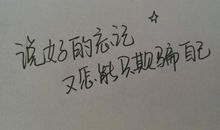 说好的忘记
又怎能只期骗自己